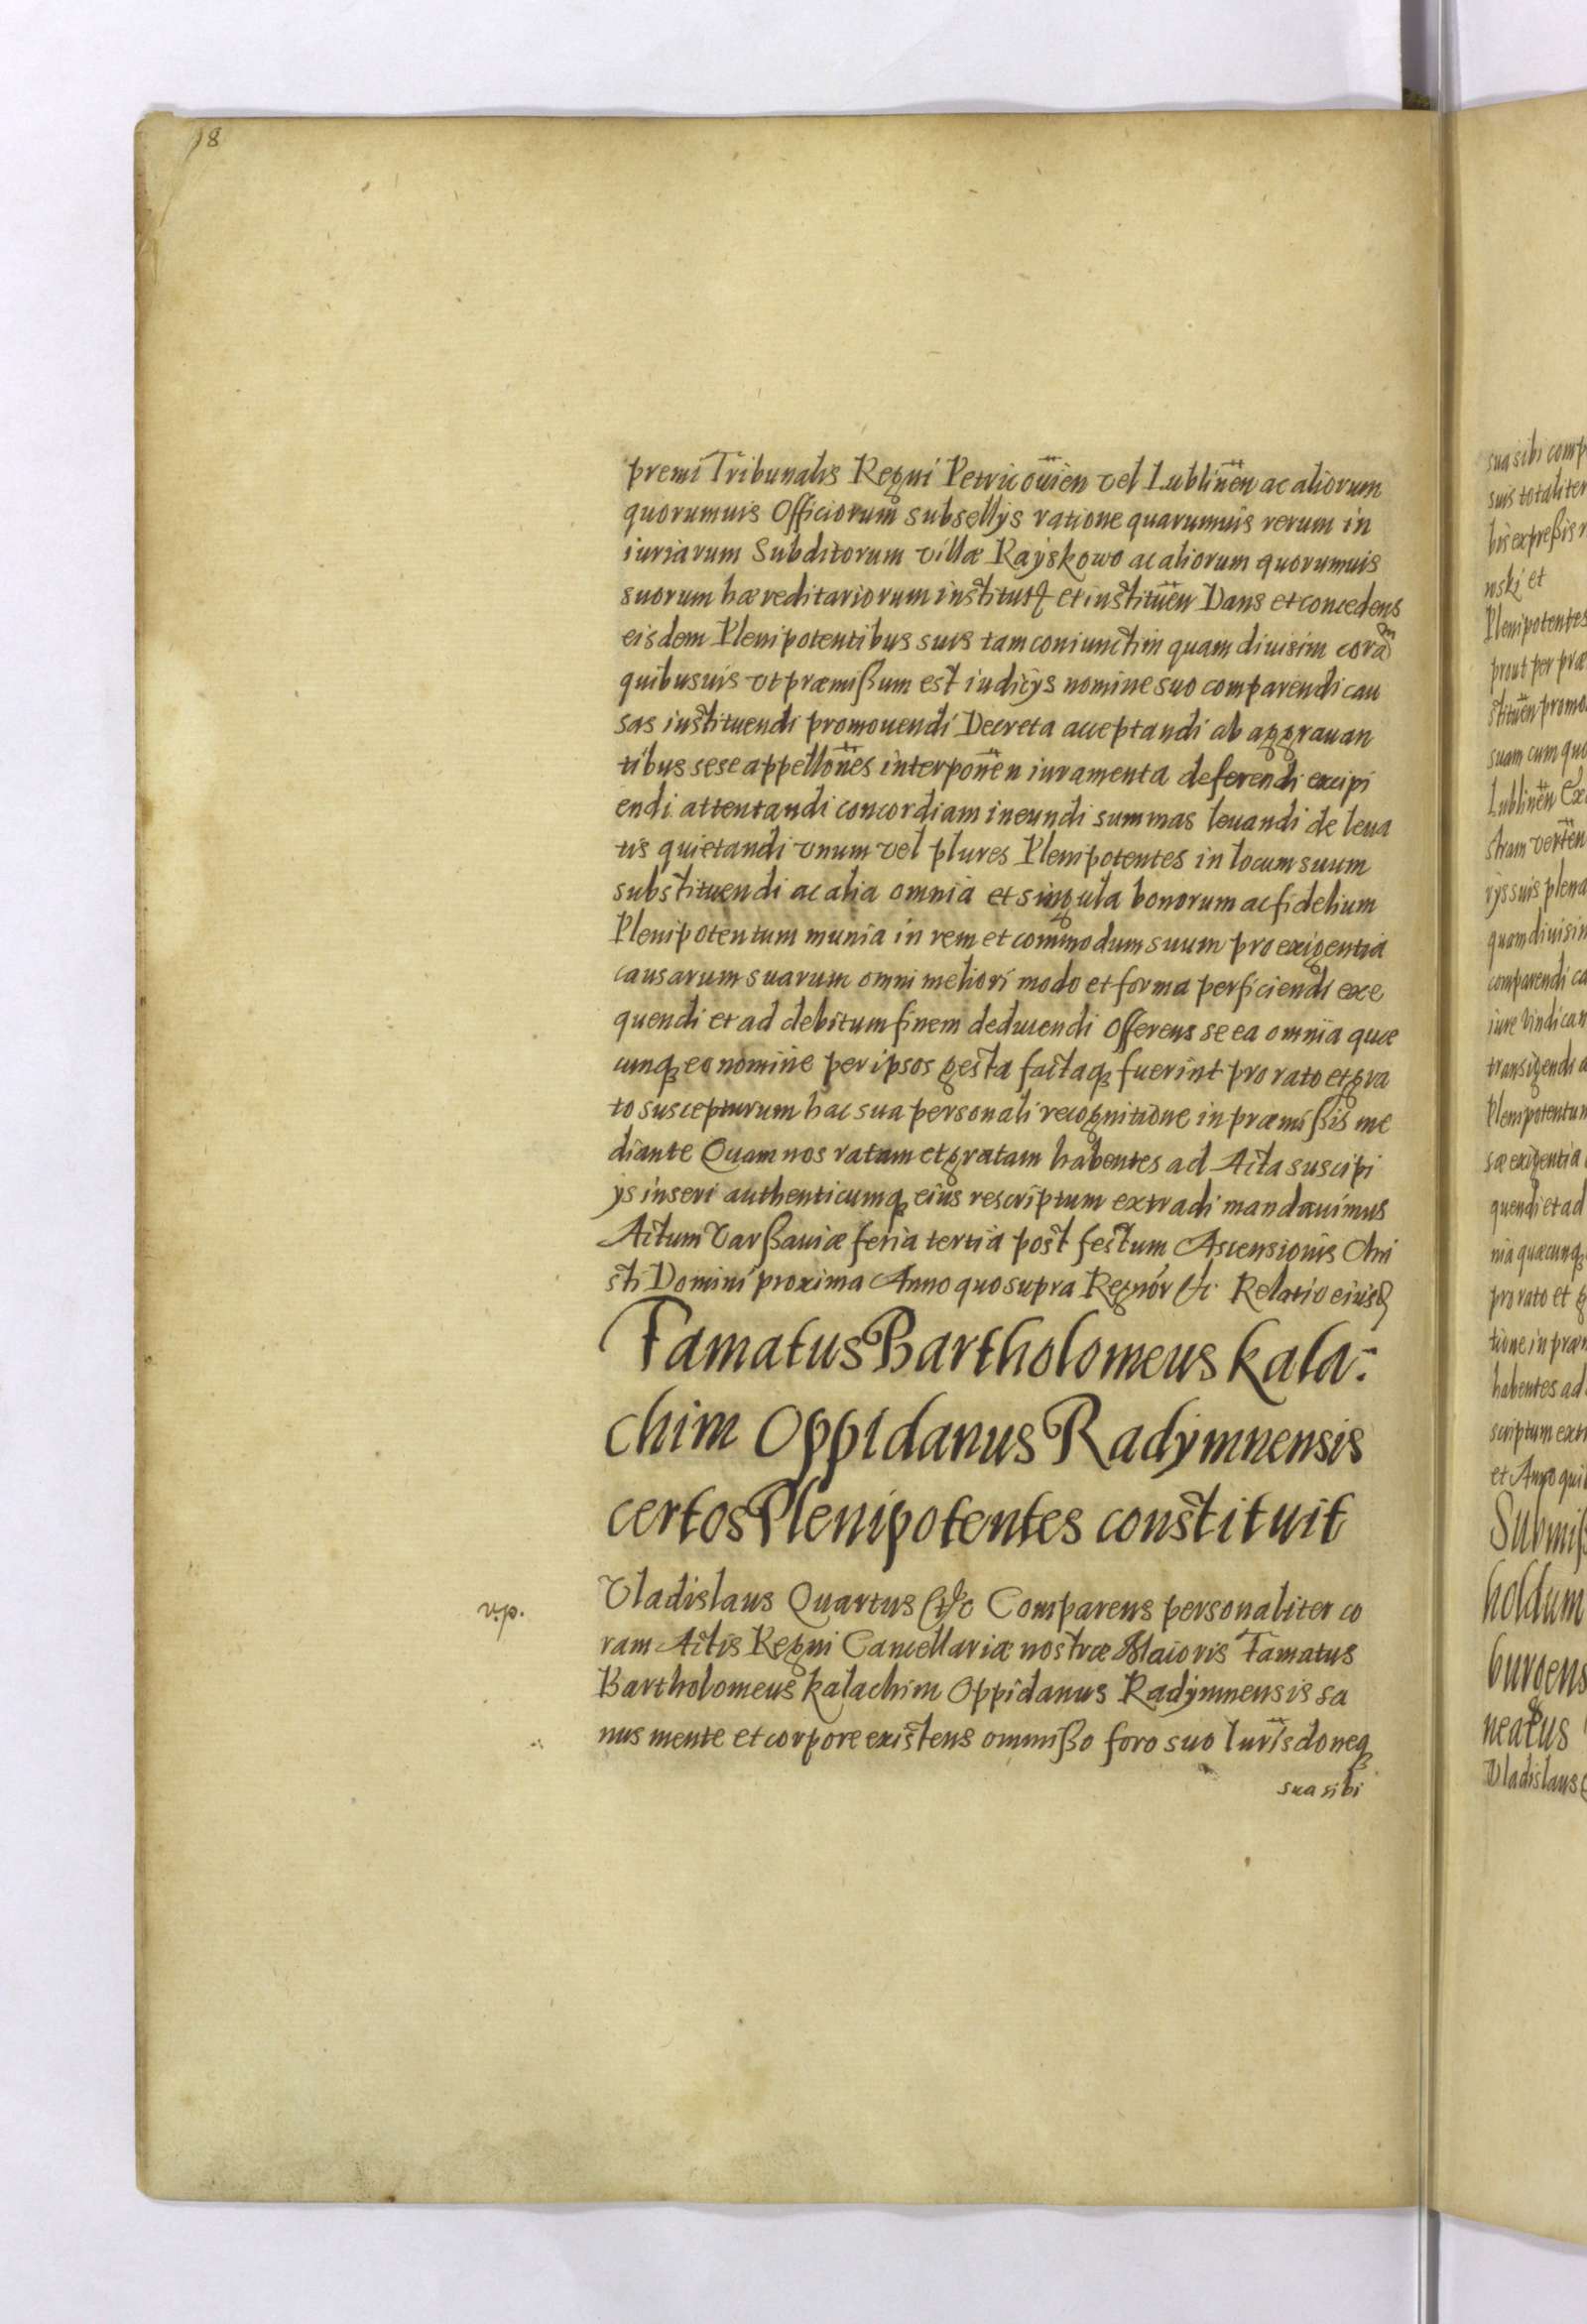 18
premi Tribunalis Regni Petricouien vel Lublinen ac aliorum
quorumuis Officiorum subsellys ratione quarumuis rerum in
iuriarum Subditorum villæ Rayskowo ac aliorum quorumuis
suorum hæreditariorum institut et instituen Dans et concedens
eisdem Plenipotentibus suis tam coniunctim quam diuisim coram
quibusuis vt præmißum est iudicys nomine suo comparendi cau
sas instituendi promouendi Decreta acceptandi ab aggrauan
tibus sese appellones interponen iuramenta deferendi excipi
endi attentandi concordiam ineundi summas leuandi de leua
tis quietandi vnum vel plures Plenipotentes in locum suum
substituendi ac alia omnia et singula bonorum ac fidelium
Plenipotentum munia in rem et commodum suum pro exigentia
causarum suarum omni meliori modo et forma perficiendi exe
quendi et ad debitum finem deducendi Offerens se ea omnia quæ
cunq eo nomine per ipsos gesta factaq fuerint pro rato et gra
to suscepturum hac sua personali recognitione in præmißis me
diante Quam nos ratam et gratam habentes ad Acta suscipi
ys inseri authenticumq eius rescriptum extradi mandauimus
Actum Varßauiæ feria tertia post festum Ascensionis Chri
sti Domini proxima Anno quo supra Regnor &c. Relatio eiusd
Famatus Bartholomeus Kala:
chim Oppidanus Radymnensis
certos Plenipotentes constituit
v.p.
Vladislaus Quartus &c Comparens personaliter co
ram Actis Regni Cancellariæ nostræ Maioris Famatus
Bartholomeus Kalachim Oppidanus Radymnensis sa
nus mente et corpore existens ommißo foro suo Iurisdoneq
sua sibi
sua sibi comp
suis totaliter
his expreßis
wski et
Plenipotentes
prout per præ
stituen promo
suam cum quo
Lublinen
stram verten
rys suis plena
quam diuisim
comparendi ca
iure vindican
transigendi a
Plenipotentum
sæ exigentia
quendi et ad
nia quæcunq
pro rato et g
tione in præm
habentes ad
scriptum extr
et Anno qui
Submiß
holdum
burgens
neatus
Vladislaus